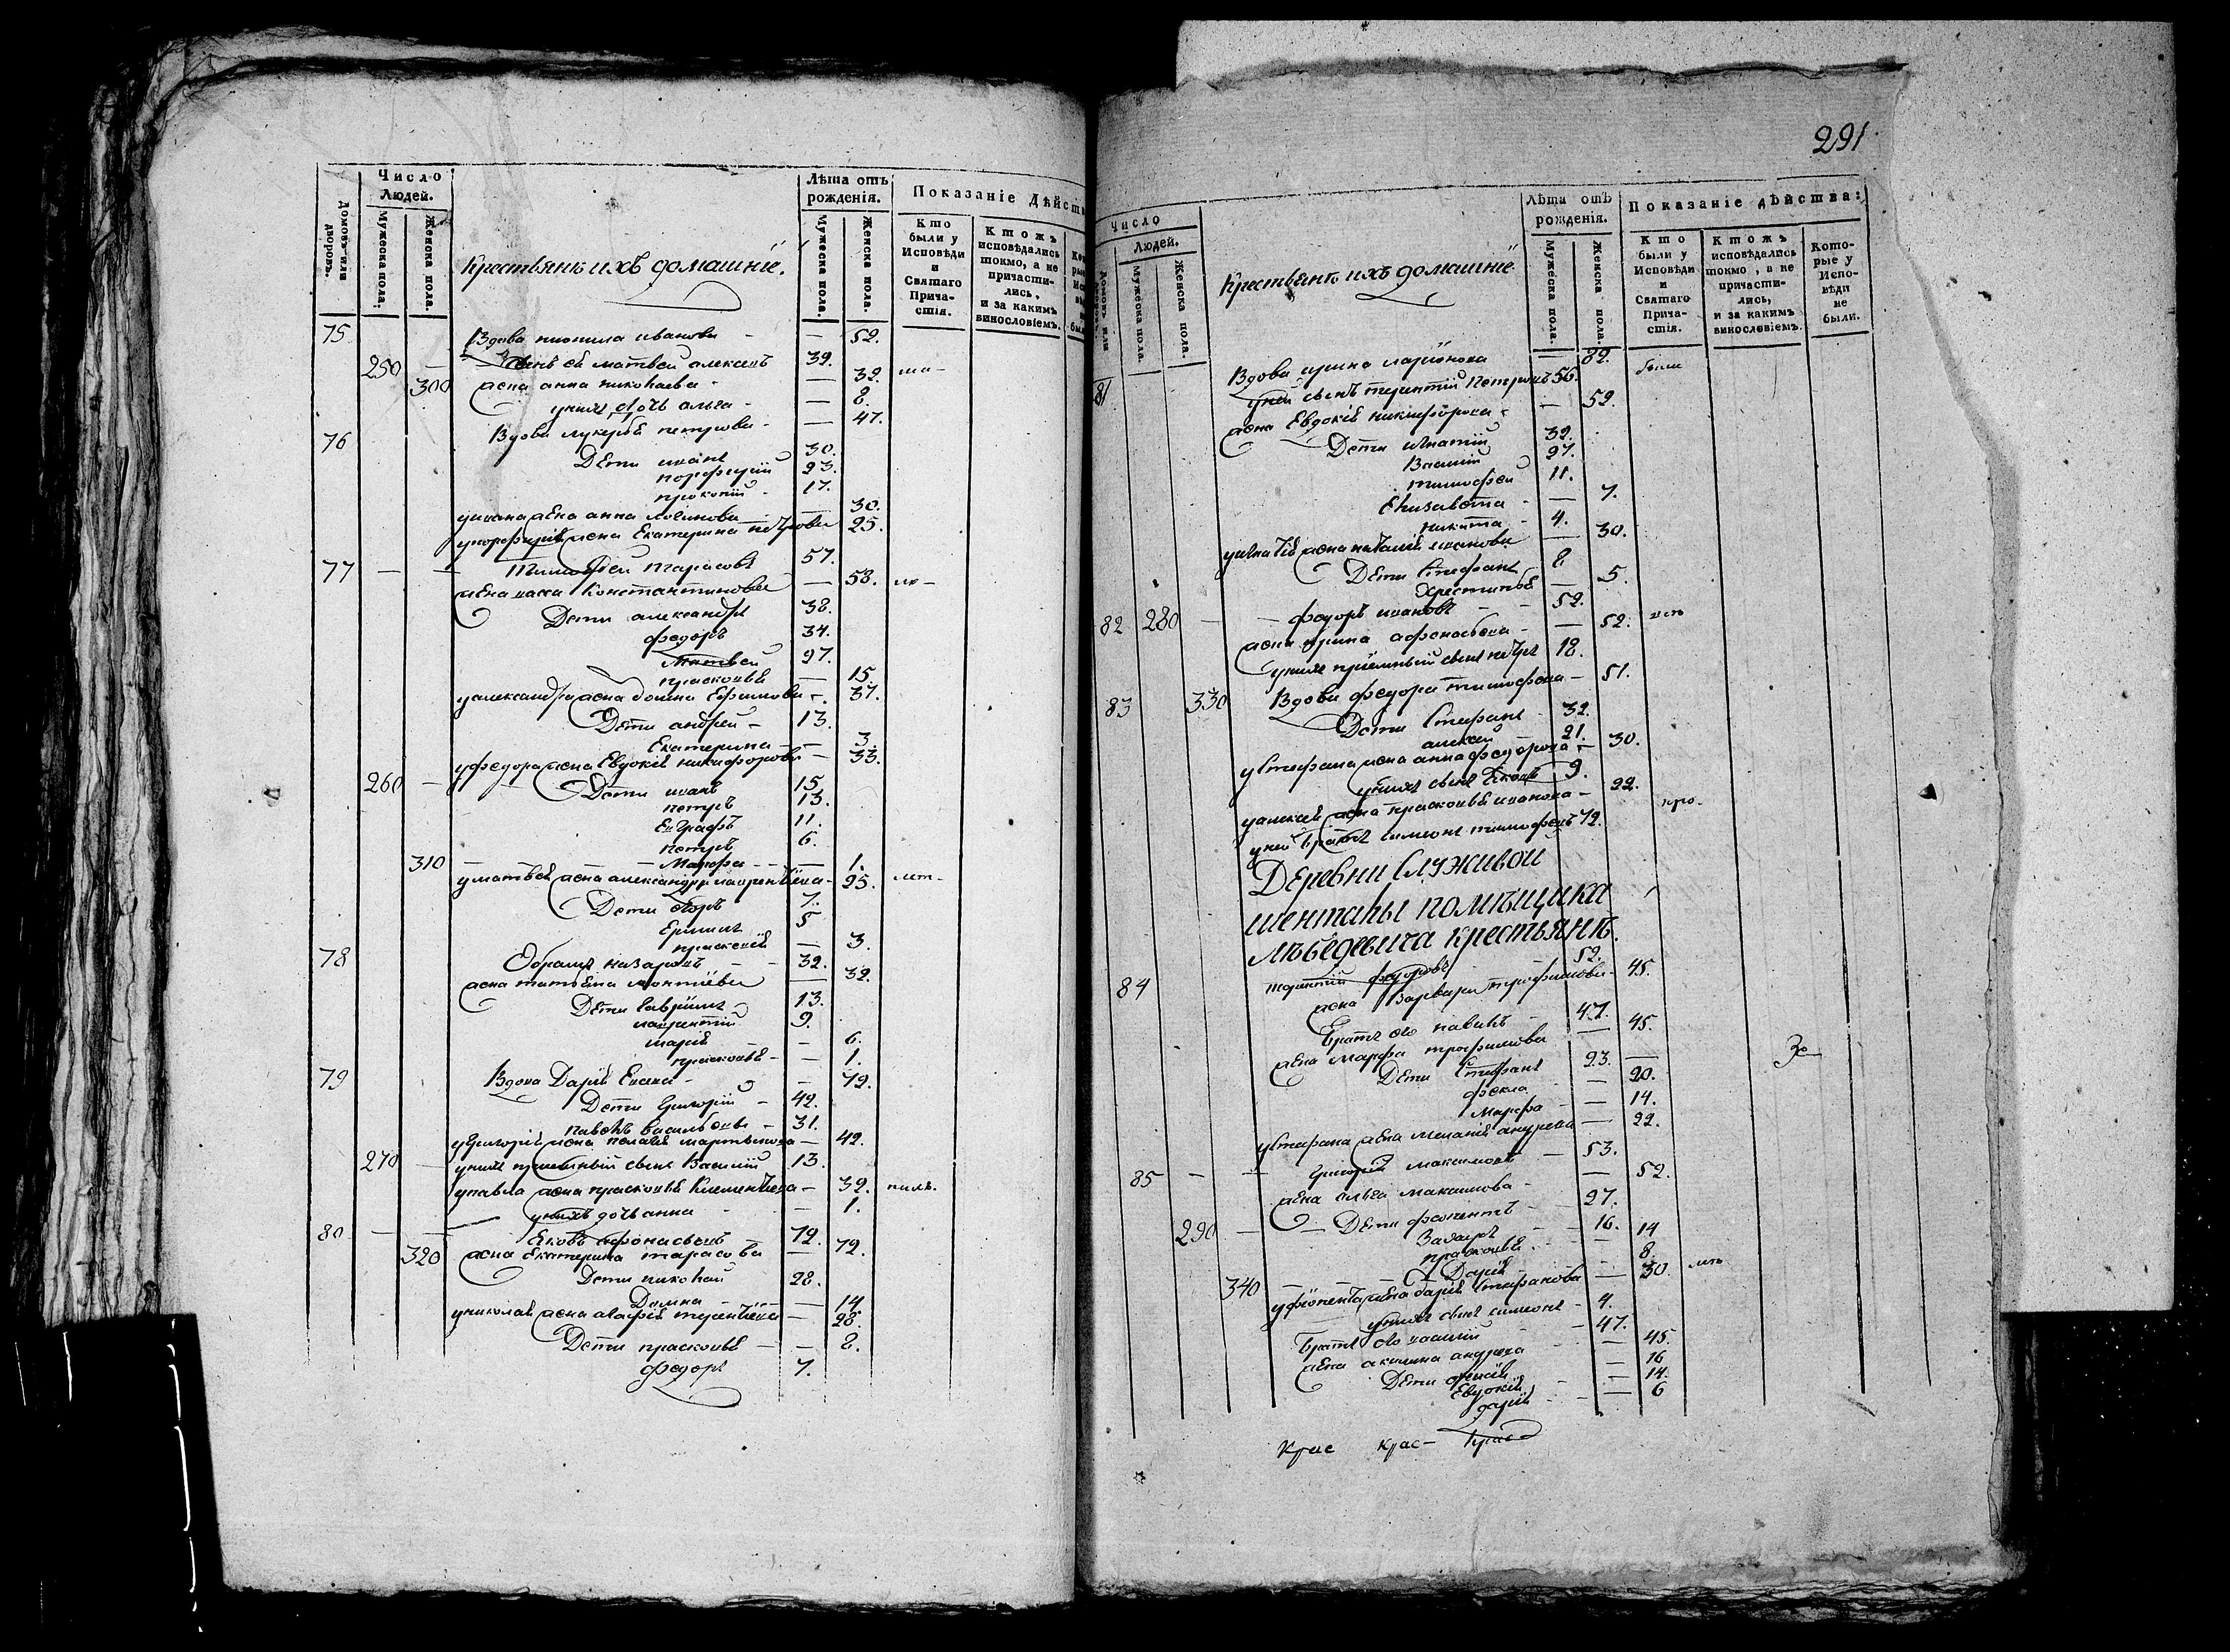 Домовъ или дворовъ.
Число Людей.
Мужеска пола.
Женска пола.
Крестьяне ихъ домашнiе.
Лѣта отъ рожденiя.
Мужеска пола.
Женска пола.
Показанiе Дѣйств
Кто были у Исповѣди и Святаго Причастiя.
Ктожъ исповѣдались токмо, а не причастились, и за какимъ винословiемъ.
75 Вдова иванова — 52.
250 — Сынъ еѣ матвей алексеевъ 39.
300 жена анна николаева — 32.
у нихъ дочь ольга — 8.
76 Вдова лукерья петрова — 47.
Дети иванъ 30.
порфирiй 23.
прокопiй 17.
у ивана жена анна логинова — 30.
у порфирiя жена Екатерина петрова 25.
77 — — Тимофей тарасовъ 57.
жена васса Константинова — 58.
Дети александръ 38.
федоръ 34.
Матвей 27.
прасковья — 15.
у александра жена домна Ефимова — 37.
Дети андрей — 13.
Екатерина — 3.
у федора жена Евдокiя никифорова — 33.
260 — Дети иванъ 15.
петръ 13.
Евграфъ 11.
петръ 6.
310 — Марфа — 1.
у матвея жена александра лаврентiева — 25.
Дети егоръ 7.
Ермилъ 5
— 3.
78 Абрамъ назаровъ — 32.
жена татьяна леонтiева — 32.
Дети гаврiилъ 13.
лаврентiй 9.
марiя — 6.
прасковья — 1.
79 Вдова Дарiя — 72.
Дети григорiй — 42.
павелъ васильевы — 31.
у григорiя жена пелагея мартынова — 42.
270 — у нихъ прiемный сынъ Василiй 13.
у павла жена прасковья Климентiева — 32.
у нихъ дочь анна — 1.
80 — — Яковъ афонасьевъ 72.
320 жена Екатерина тарасова — 72.
Дети николай 28.
Домна — 14
у николая жена агафiя терентiева — 28.
Дети прасковья — 8.
федоръ 7.
291
Число Людей.
Домовъ или
Мужеска пола.
Женска пола.
Крестьяне ихъ домашнiе.
Лѣта отъ рожденiя.
Мужеска пола.
Женска пола.
Показанiе дѣйства:
Кто были у Исповѣди и Святаго Причастiя.
Ктожъ исповѣдались токмо, а не причастились, и за какимъ винословiемъ.
Которые у Исповѣди не были.
81 Вдова ирина ларiонова — 82. были
у ней сынъ терентiй Петровъ 56.
жена Евдокiя никифорова — 52.
Дети игнатiй 32.
Василiй 27.
тимофей 11.
Елизавета — 7.
никита — 4.
у игнатiя жена наталья иванова — 30.
Дети Стефанъ 8
Христинья — 5.
82 280 — федоръ ивановъ — 52.
жена ирина афонасьева — 52.
у нихъ прiемный сынъ петръ 18.
83 330 Вдова федора тимофеева — 51.
Дети Стефанъ 32.
алексей 21.
у Стефана жена анна федорова — 30.
у нихъ сынъ Яковъ 9.
у алексея жена прасковья иванова — 22.
у ней братъ симеонъ тимофеевъ 72.
Деревни Служивой
шенталы помѣщика
крестьянѣ.
84 терентiй федоровъ 52.
жена Варвара трофимова — 45.
Братъ его павелъ — 47.
жена Марфа трофимова — 45.
Дети Стефанъ 23. —
фекла — 20.
Марфа — 14.
у Стефана жена меланiя андреева — 22.
85 — — григорiй максимовъ — 53.
жена ольга максимова — 52.
290 — Дети — 27.
Захаръ — 16.
прасковья — 14
Дарiя — 8.
340 жена дарiя Стефанова — 30.
у нихъ сынъ симеонъ — 4.
Братъ его василiй — 47.
жена акилина андреева — 45.
Дети — 16
Евдокiя — 14.
дарiя — 6